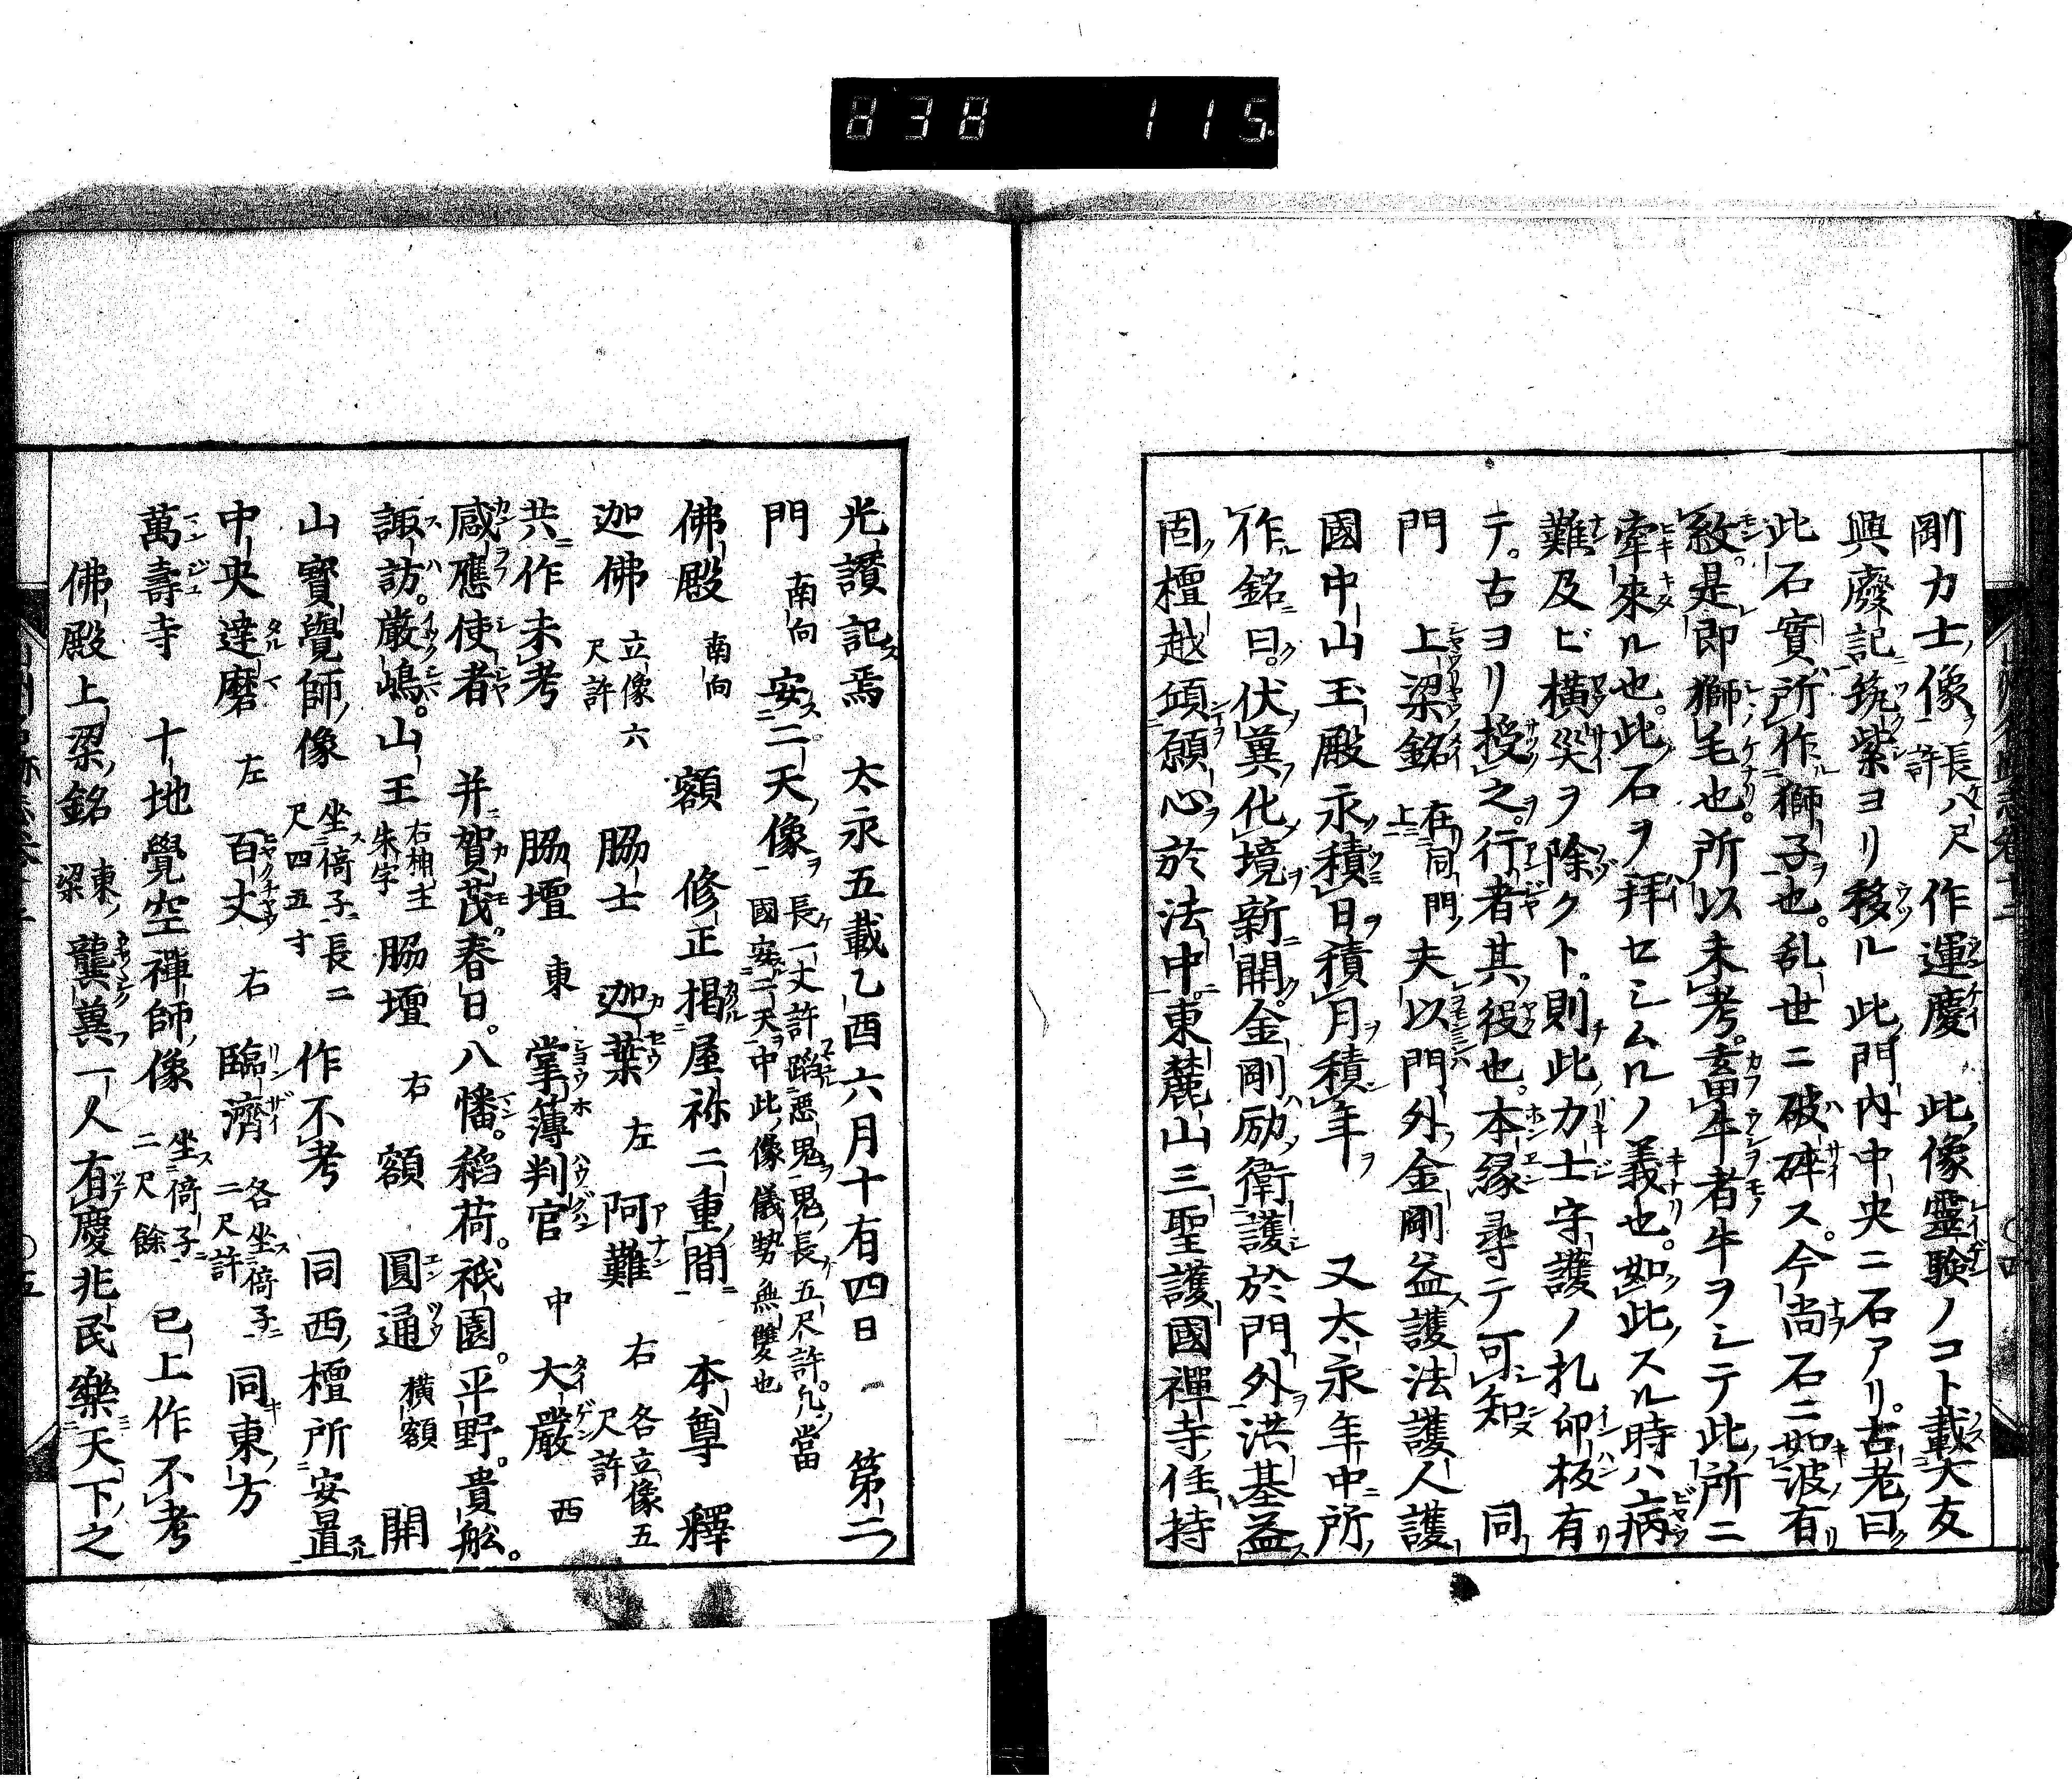 838 115
剛力士像長八尺許 作運慶 此像靈驗ノコト載大友
興廢記筑紫ヨリ移ル此門內中央ニ石アリ古老曰
此石實所作獅子也。乱世ニ破碎ス。今尚石ニ如波有
紋。是即獅毛也所以未考。畜牛者牛ヲシテ此所ニ
牽來ル也。此石ヲ拜セシムルノ義也。如此スル時ハ病
難及ビ橫災ヲ除クト。則此力士守護ノ札印板有
テ。古ヨリ授之。行者其役也。本縁尋テ可知 同
門 上梁銘在同門上 夫以門外金剛益護法護人護
國中山玉殿永積日積月積年 又大永年中所
作銘曰。伏冀化境新開。金剛励衛護於門外洪基益
固檀越傾願心於法中。東麓山三聖護國禪寺住持
光讃記焉 太永五載乙酉六月十有四日 第二
門南向 安二天像長一丈許蹈惡鬼鬼長五尺許。凡當國安二天中此像儀勢無雙也
佛殿南向 額 修正 揭屋祢二重間 本尊 釋
迦佛立像六尺許 脇士 迦葉左 阿難右各立像五尺許
共作未考 脇壇東 掌薄判官中 大嚴西
感應使者 并賀茂。春日。八幡。稻荷。祇園。平野。貴舩。
諏訪。嚴嶋。山王右柚主朱字 脇壇右 額 圓通橫額 開
山寶覺師像坐倚子長二尺四五寸 作不考 同西檀所安置
中央達磨左 百丈右 臨濟各坐倚子二尺許 同東方
萬壽寺 十地覺空禪師像坐倚子二尺餘 已上作不考
佛殿上梁銘東梁 龔冀一人有慶兆民樂天下之